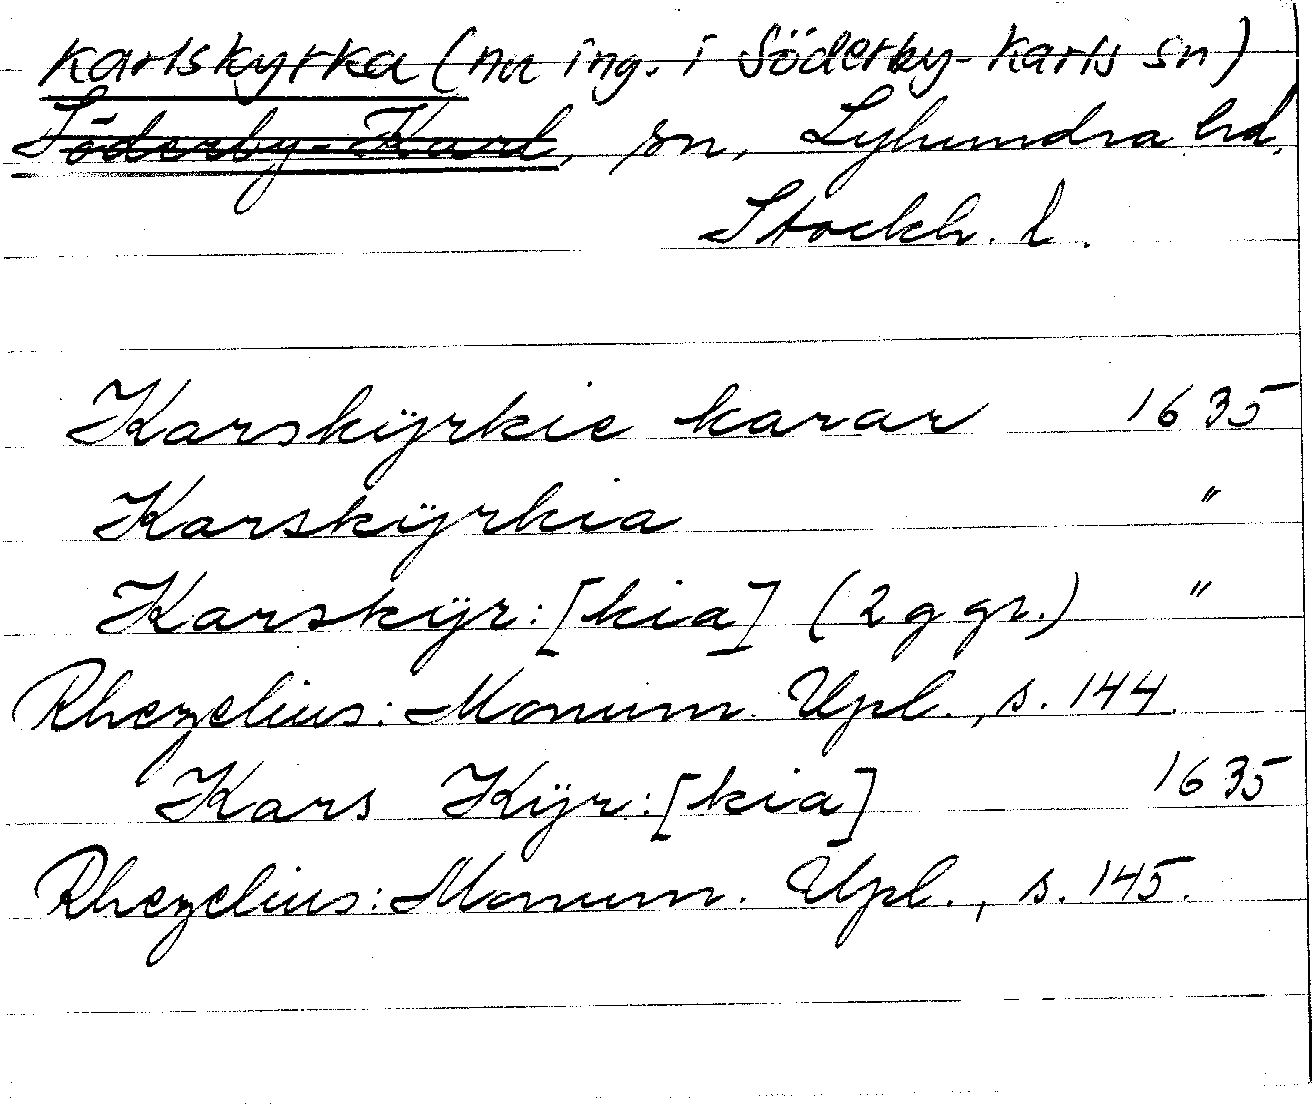 Karlskyrka (nu ing. i Söderby-Karls sn)
Söderby-Karl, sn, Lyhundra hd,
Stockh. l.
Karskÿrkie karar 1635
Karskÿrkia "
Karskÿr:[kia] (2 ggr.) "
Rhezelius: Monum. Upl., s. 144.
Kars Kÿr:[kia] 1635
Rhezelius: Monum. Upl., s. 145.